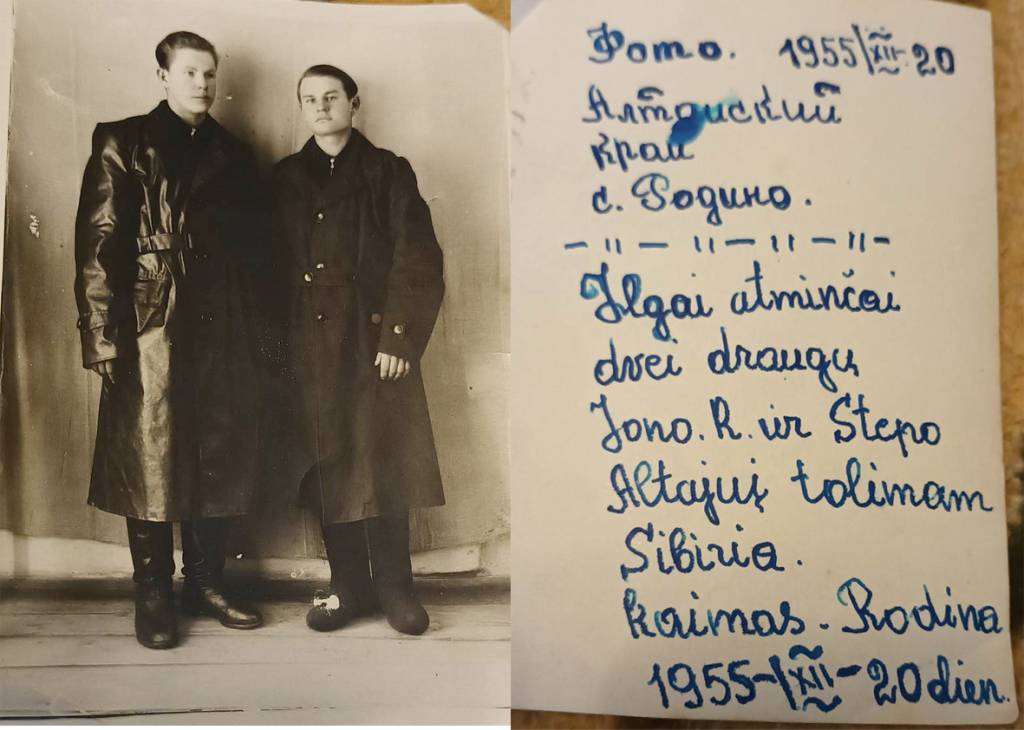 Фото. 1955/XII-20
Алтайский
край
с. Родино.
— " — " — " — " —
Ilgai atminčai
dvei draugų
Jono. R. ir Stepo
Altajuį tolimam
Sibiria.
kaimas. Rodina
1955-/XII-20 dien.